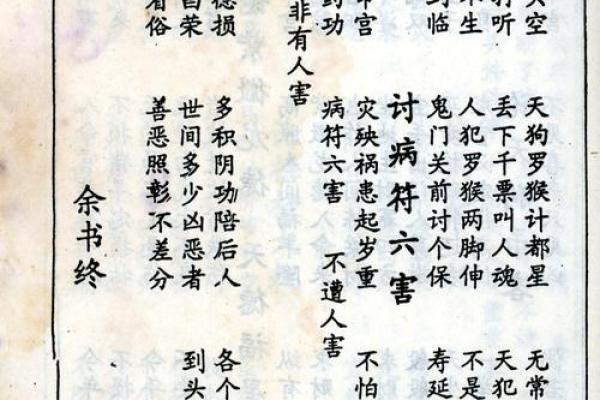 空 天狗罗猴计都星 无常
听 丢下千票叫人魂 天犯
生 人犯罗猴两脚伸 不是
到临 鬼门关前讨个保 寿延
讨病符六害
宫 灾殃祸患起岁重 不怕
功 病符六害 不遭人害
非有人害
损 多积阴功陪后人 各个
荣 世间多少凶恶者 到头
俗 善恶照彰不差分
余书终